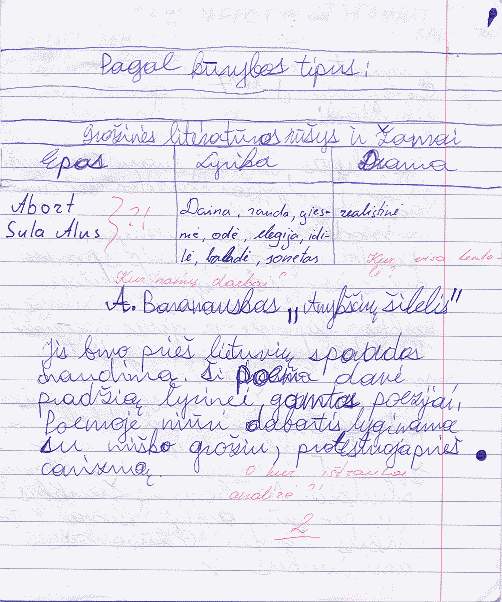 Pagal kūrybos tipus:
Grožinės literatūros rūšys ir žanrai
Epas Lyrika Drama
Abort
Sula Alus
?!
Daina, rauda, gies- realistinė
mė, odė, elegija, idi-
lė, baladė, sonetas
Kur visa lente-
lė?
Kur namų darbai?
A. Baranauskas „Anykščių šilelis"
Jis buvo prieš lietuvių spaudos
draudimą. Ši poema davė
pradžią lyrinei gamtos poezijai,
Poemoje niūri dabartis lyginama
su miško grožiu, protestuoja prieš
carizmą.
O kur ištrauka
analizė?!
2